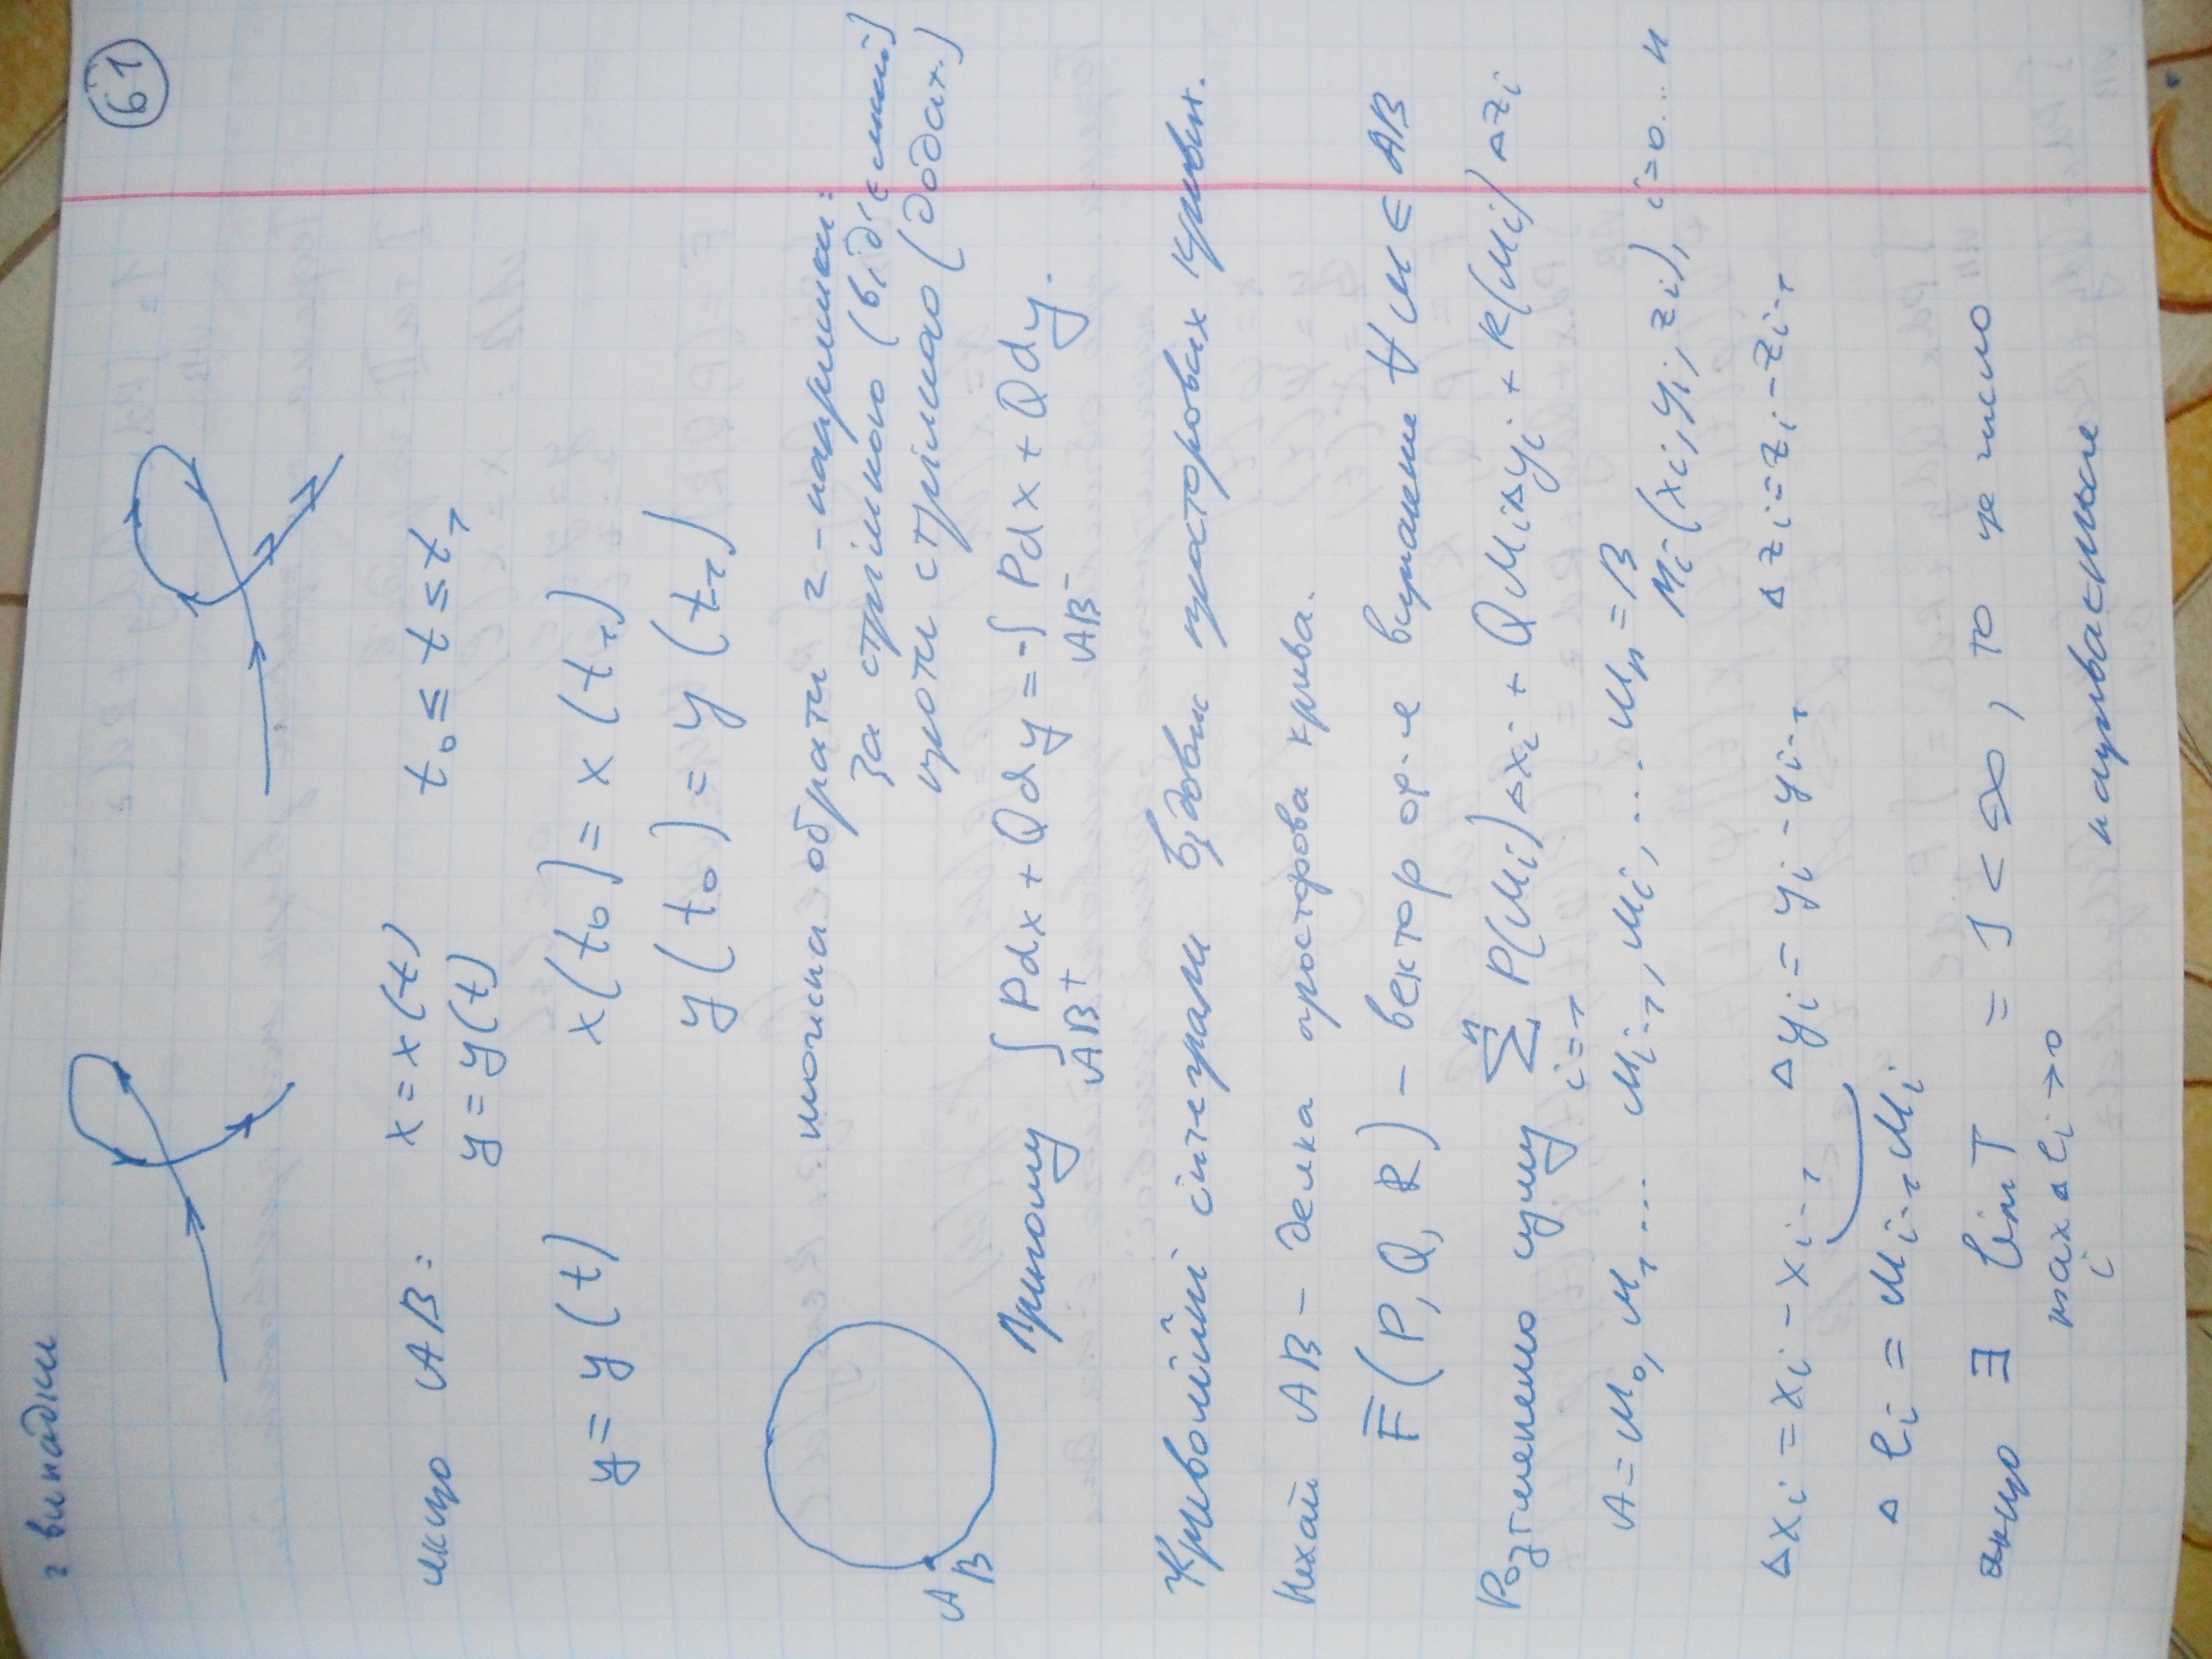 61
2 випадки
якщо AB: x = x(t) t₀ ≤ t ≤ t₁
y = y(t)
y = y(t) x(t₀) = x(t₁)
y(t₀) = y(t₁)
можна обрати 2-напрямки:
за стрілкою (від'ємний)
проти стрілкою (додат.)
A
B
Причому ∫ Pdx + Qdy = -∫ Pdx + Qdy.
AB⁺ AB⁻
Криволійні інтеграли вздовж просторових кривих.
Нехай AB - деяка просторова крива.
F̅(P, Q, R) - вектор ф-я визначене ∀ M ∈ AB
Розглянемо суму ∑ P(Mi)Δxi + QMiΔyi + R(Mi)Δzi
n
i=1
A = M₀, M₁ ... Mi-1, Mi, ... Mn = B
Mi(xi, yi, zi), i=0...n
Δxi = xi - xi-1 Δyi = yi - yi-1 Δzi = zi - zi-1
Δli = Mi-1Mi
якщо ∃ lim T = J < ∞, то це число
max Δli → 0
i
називається